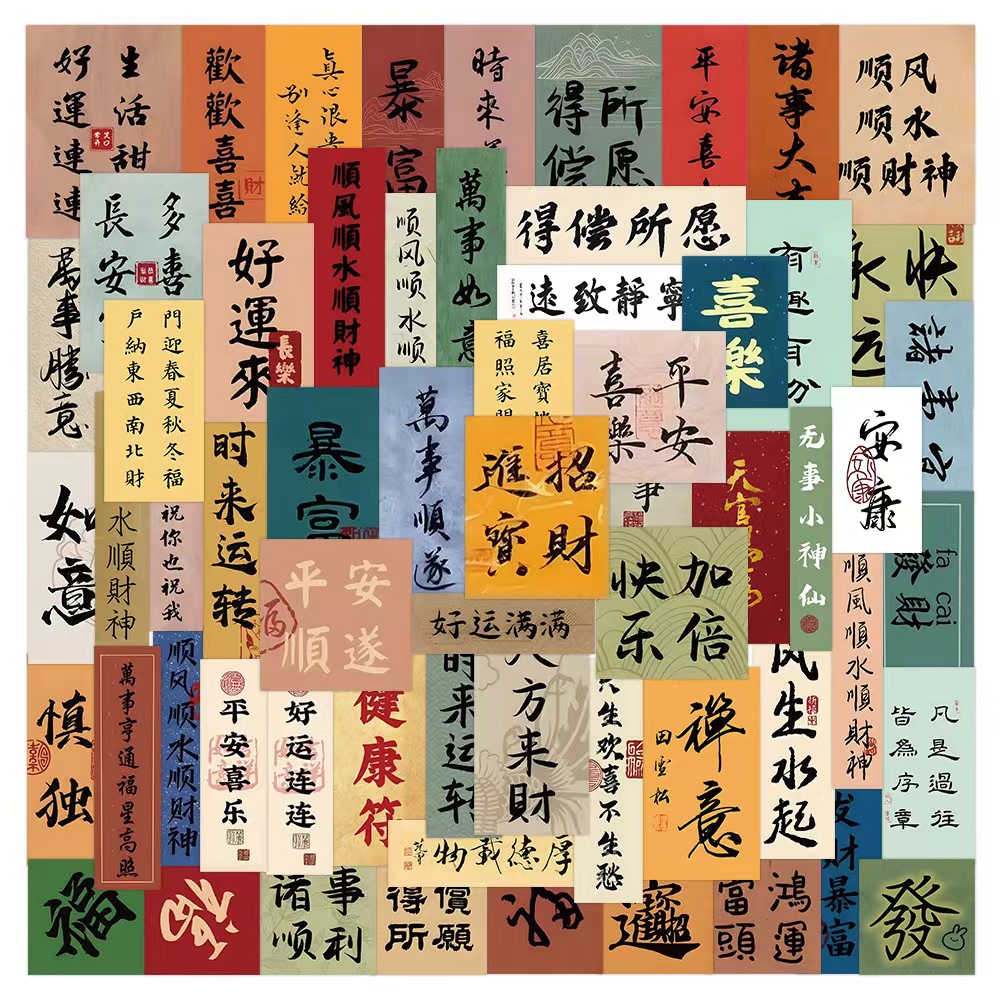 生活甜
好運連連
歡歡喜喜
真心很贵
别逢人就给
暴富
時來
所愿
得偿
平安喜
诸事大吉
风水神
顺顺顺财
多喜
長安
好運來
長樂
順風順水順財神
顺风顺水顺
萬事如意
得偿所愿
寧靜致遠
喜樂
有趣有分
快
永远
諸事
萬事勝意
門迎春夏秋冬福
戶納東西南北財
喜居寶地
福照家門
平安
喜樂
安康
如意
水順財神
祝你也祝我
时来运转
暴富
萬事順遂
招財
進寶
事
天官
无事小神仙
fa cai
發財
安遂
平順
福
好运满满
加倍
快乐
順風順水順財神
慎独
萬事亨通福星高照
顺风顺水顺财神
平安喜乐
好运连连
健康符
时来运转
八方来财
生欢喜不生愁
禅意
田雪松
风生水起
凡是過往
皆為序章
厚德載物
福
事利
诸顺
償願
得所
福
招財進寶
鴻運
當頭
发财暴富
發